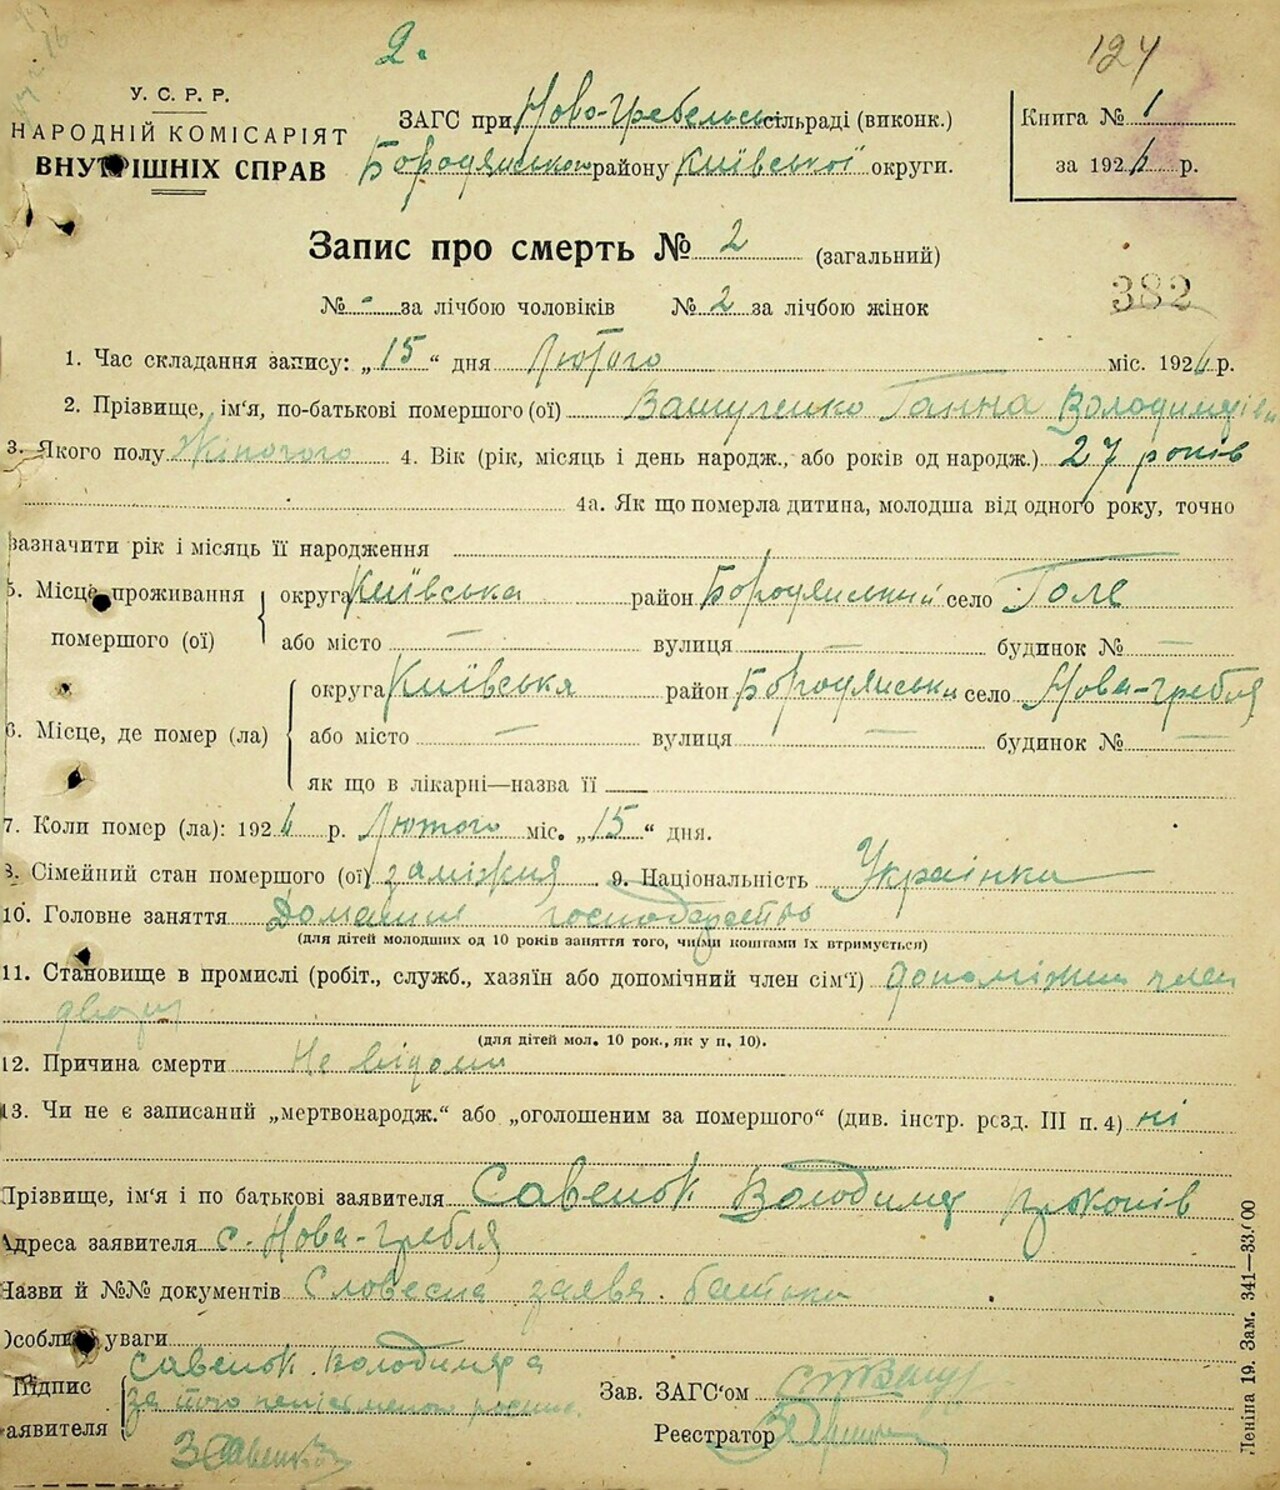 2.
124
У. С. Р. Р.
НАРОДНІЙ КОМІСАРІЯТ
ВНУТРІШНІХ СПРАВ
ЗАГС при Ново-Гребельськ сільраді (виконк.)
Бородянськом району Київської округи.
Книга № 1
за 1926 р.
Запис про смерть № 2 (загальний)
№ - за лічбою чоловіків № 2 за лічбою жінок
382
1. Час складання запису: „15“ дня Лютого міс. 1926 р.
2. Прізвище, ім‘я, по-батькові помершого (ої) Вашученко Ганна Володимирівн
3. Якого полу Жіночого 4. Вік (рік, місяць і день народж., або років од народж.) 27 років
4а. Як що померла дитина, молодша від одного року, точно
зазначити рік і місяць її народження
5. Місце проживання помершого (ої) округа Київська район Бородянський село Голе
або місто — вулиця — будинок № —
6. Місце, де помер (ла) округа Київська район Бородянськи село Нова-Гребля
або місто — вулиця — будинок № —
як що в лікарні—назва її
7. Коли помер (ла): 1926 р. Лютого міс. „15“ дня.
8. Сімейний стан помершого (ої) заміжня 9. Національність Українка
10. Головне заняття Домашнє господарство
(для дітей молодших од 10 років заняття того, чиїми коштами їх втримується)
11. Становище в промислі (робіт., служб., хазяїн або допомічний член сім‘ї) допоміжни член
двору
(для дітей мол. 10 рок., як у п. 10).
12. Причина смерти Не відома
13. Чи не є записаний „мертвонародж.“ або „оголошеним за помершого“ (див. інстр. розд. III п. 4) ні
Прізвище, ім‘я і по батькові заявителя Савенок Володимир Прокопів
Адреса заявителя с. Нова-Гребля
Назви й №№ документів Словесна заява батька
Особливі уваги
Підпис заявителя Савенок Володимира
за його неписьменого росписк
Зав. ЗАГС‘ом
Реєстратор
Леніна 19. Зам. 341—33.000